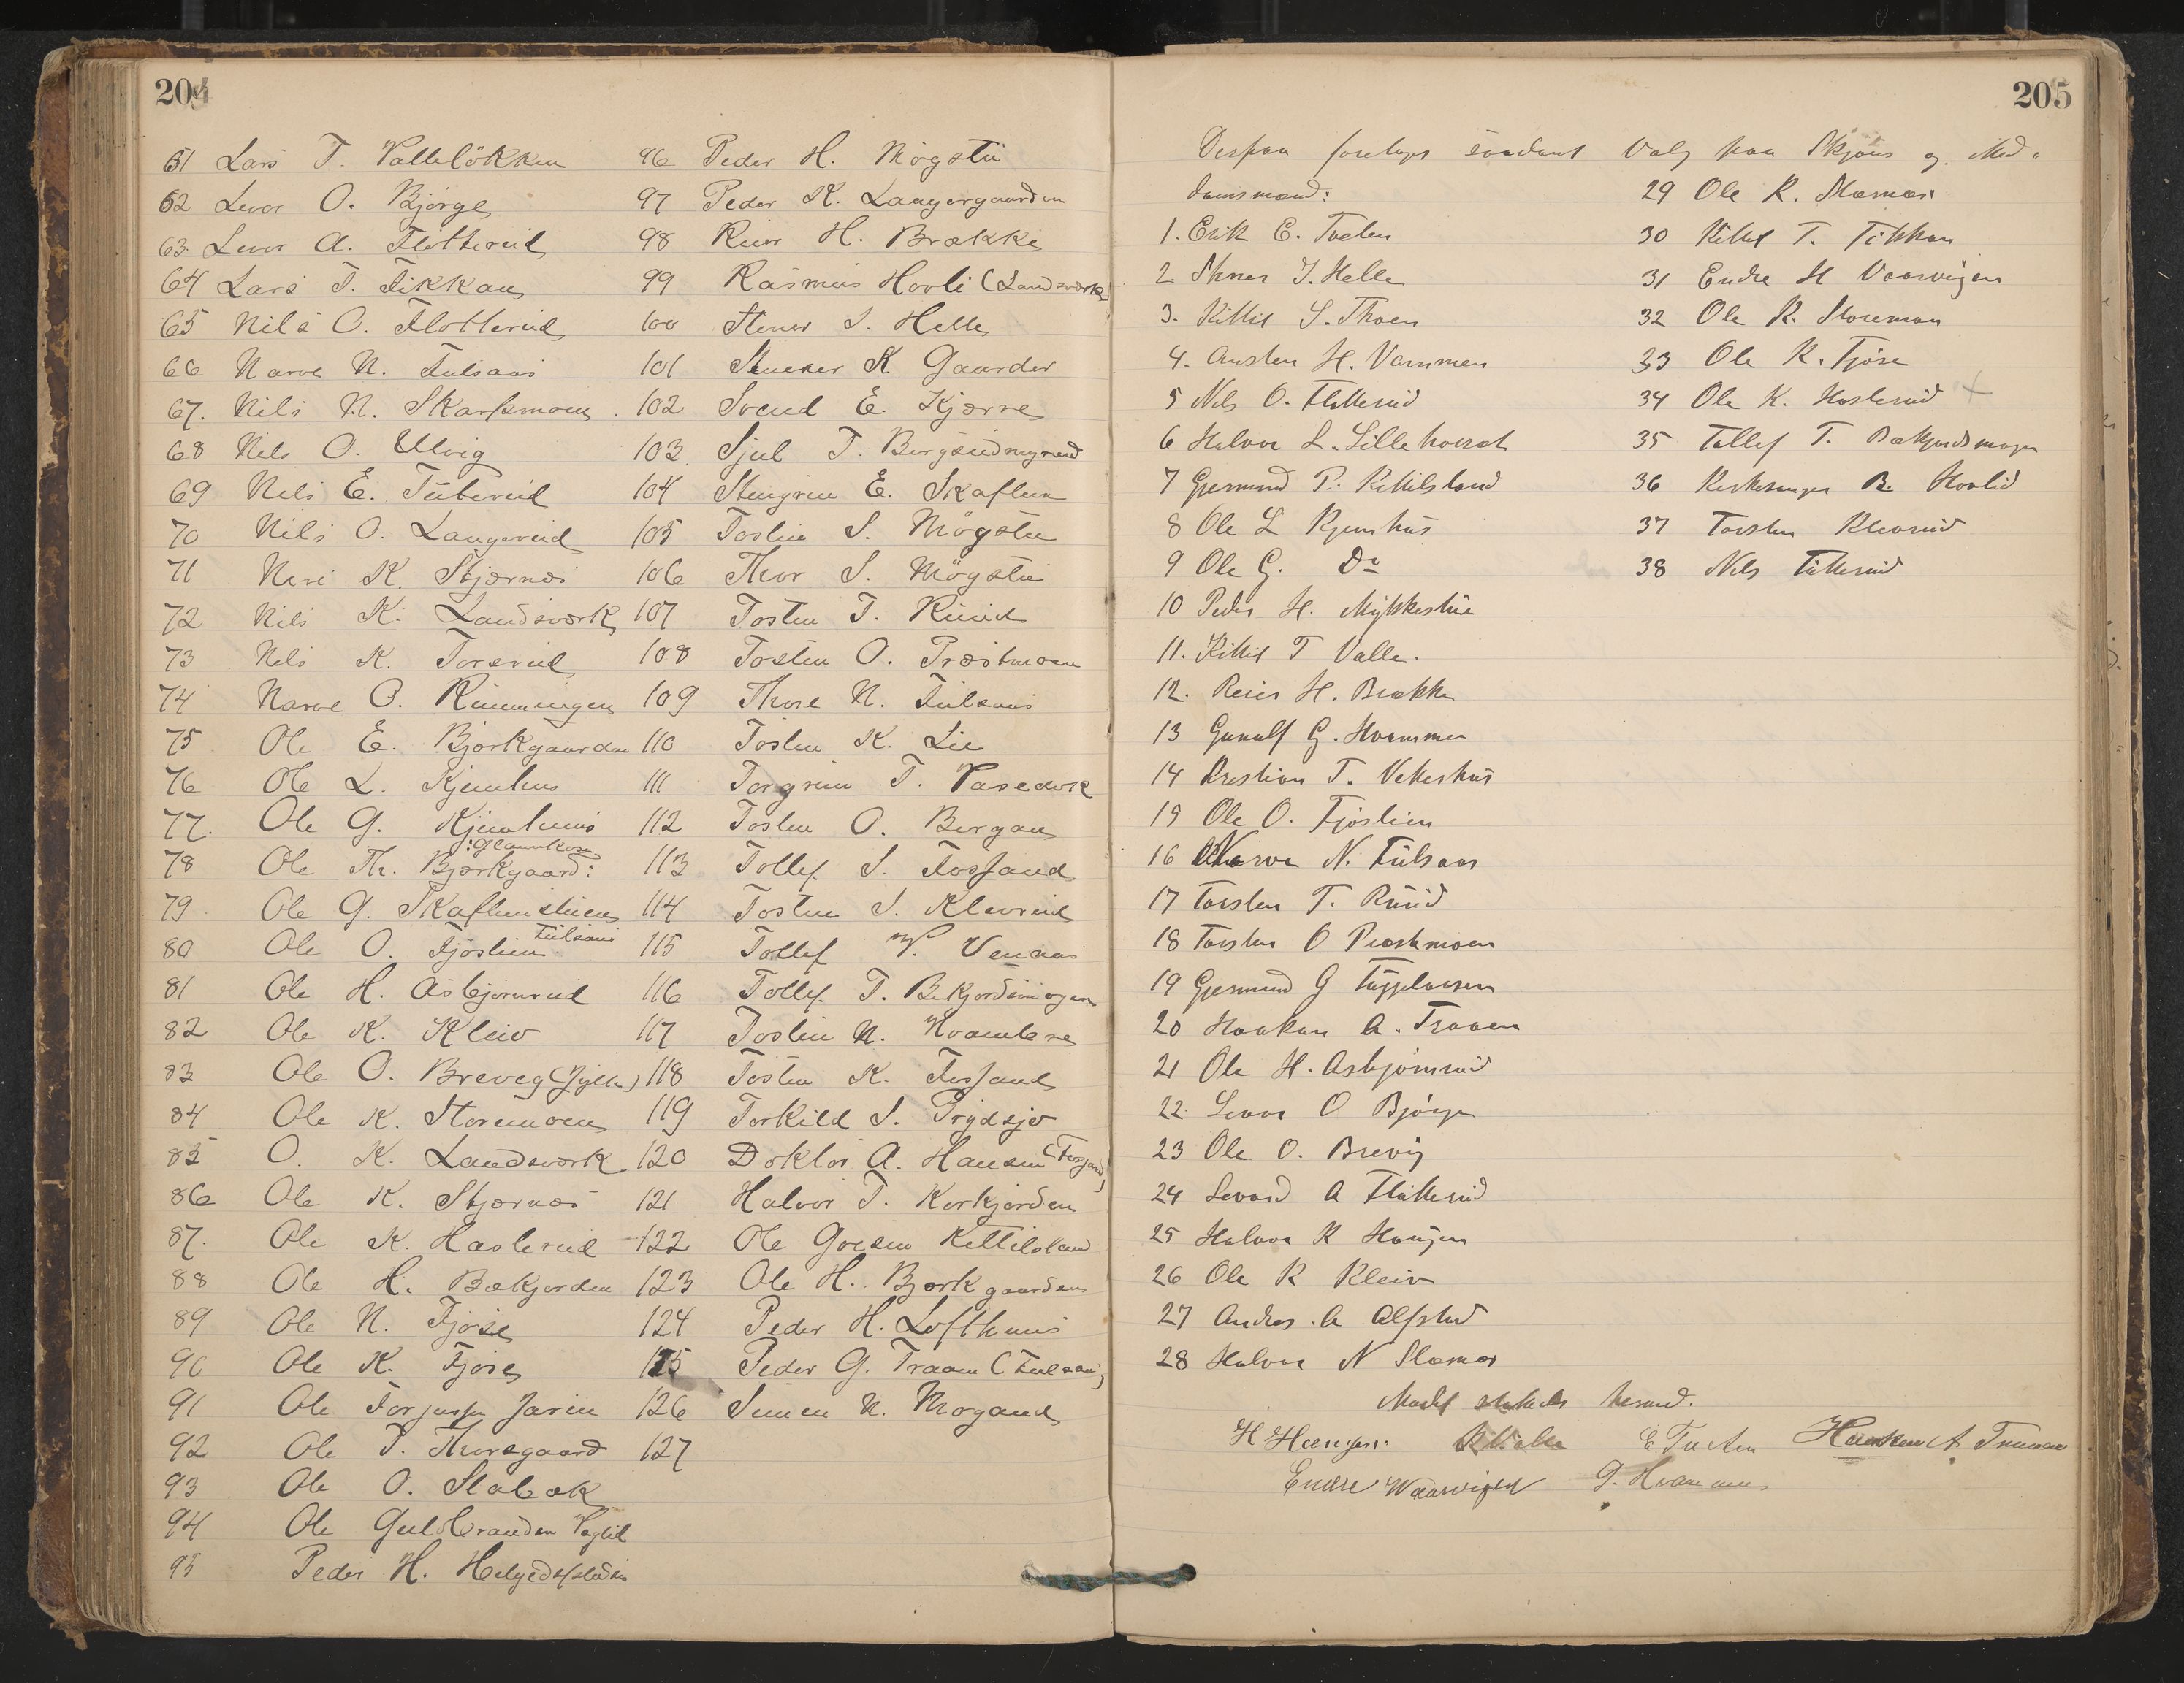 204
61 Lars T. Vallelökken
62 Levor O. Bjørge
63. Levor A. Flotterud
64 Lars T. Fikkan
65 Nils O. Flotterud
66 Narve N. Fulsaas
67. Nils N. Skarfsmoen
68 Nils O. Ulvig
69 Nils E. Tuterud
70 Nils O. Langerud
71 Neri K. Stjærnæs
72 Nils K. Landsværk
73 Nils K. Torsrud
74 Narve O. Rimmingen
75 Ole E. Bjørkgaarden
76 Ole L. Kjemhus
77. Ole G. Kjemhuus
78 Ole Th. Bjørkgaard:
79 Ole G. Skaflemstuen
80 Ole O. Fjøslien Fulsaas
81 Ole H. Asbjørnrud
82 Ole K. Kleiv
83 Ole O. Breveg
84 Ole K. Storemoen
85 O. K. Landsværk
86 Ole K. Stjærnæs
87. Ole K. Haslerud
88 Ole H. Bækjorden
89 Ole N. Fjøse
90 Ole K. Fjøse
91 Ole Jarin
92 Ole T. Thorsgaard
93 Ole O. Slabæk
94 Ole Guldbrandsen
95 Peder H.
96 Peder H. Møgstu
97 Peder K. Laagergaarden
98 Reier H. Brække
99 Rasmus Hovli (Landsværk)
100 Stener S. Helle
101 K. Gaarder
102 Svend E. Kjærre
103 Sjul T.
104 Stengrim E. Skaflem
105 Tosten S. Møgstu
106 Thor S. Møgstu
107 Tosten T. Ruud
108 Tosten O. Præstmoen
109 Thore N. Fulsaas
110 Tosten K. Lie
111 Torgrim T.
112 Tosten O. Bergan
113 Tollef S. Fosjand
114 Tosten S. Klevrud
115 Tollef N. Vennæs
116 Tollef T. Bekjordsmogen
117 Tosten N.
118 Tosten K. Fosjand
119 Torkild S. Prydsjø
120 Doktor A. Hansen (Fosjand)
121 Halvor T. Korkjorden
122 Ole Goesen Kittilsland
123 Ole H. Bjørkgaarden
124 Peder H. Lofthuus
125 Peder G. Traaen (Fulsaas)
126 Simen N. Mogand
127
205
Derpaa foretoges saadant Valg paa Skjøns og Med-
domsmænd:
1. Erik E. Tveten
2 Stener S. Helle
3. Kittil S. Thoen
4. Austen H. Vammen
5 Nils O. Flotterud
6 Halvor L. Lillehovret
7 Gjermund P. Kittilsland
8 Ole L Kjemhus
9 Ole G. Do
10 Peder H. Mykkestue
11. Kittil T Valle.
12. Reier H. Brække
13 Gunulf G. Hvammen
14 Kristian T. Vekeshus
15 Ole O. Fjøslien
16 Narve N. Fulsaas
17 Torsten T. Ruud
18 Torsten O Præstmoen
19 Gjermund G
20 Haakon A. Traaen
21 Ole H. Asbjørnrud
22 Levor O Bjørge
23 Ole O. Brevig
24 Levord A Flotterud
25 Halvor K Haugen
26 Ole K Kleiv
27 Andres A Alfstad
28 Halvor N Slæmas
29 Ole K. Stærnæs
30 Kittil T. Fikkan
31 Endre H Vaarvigen
32 Ole K. Storemoen
33 Ole K. Fjøse
34 Ole K. Haslerud
35 Tollef T. Bækjordsmogen
36 Kirkesanger R. Hovlid
37 Torsten Klevrud
38 Nils Tutterud
Mødet sluttedes hermed.
H Haugen E. Tveten Haakon A Traaen
Endre Waarvigen G. Hvammen